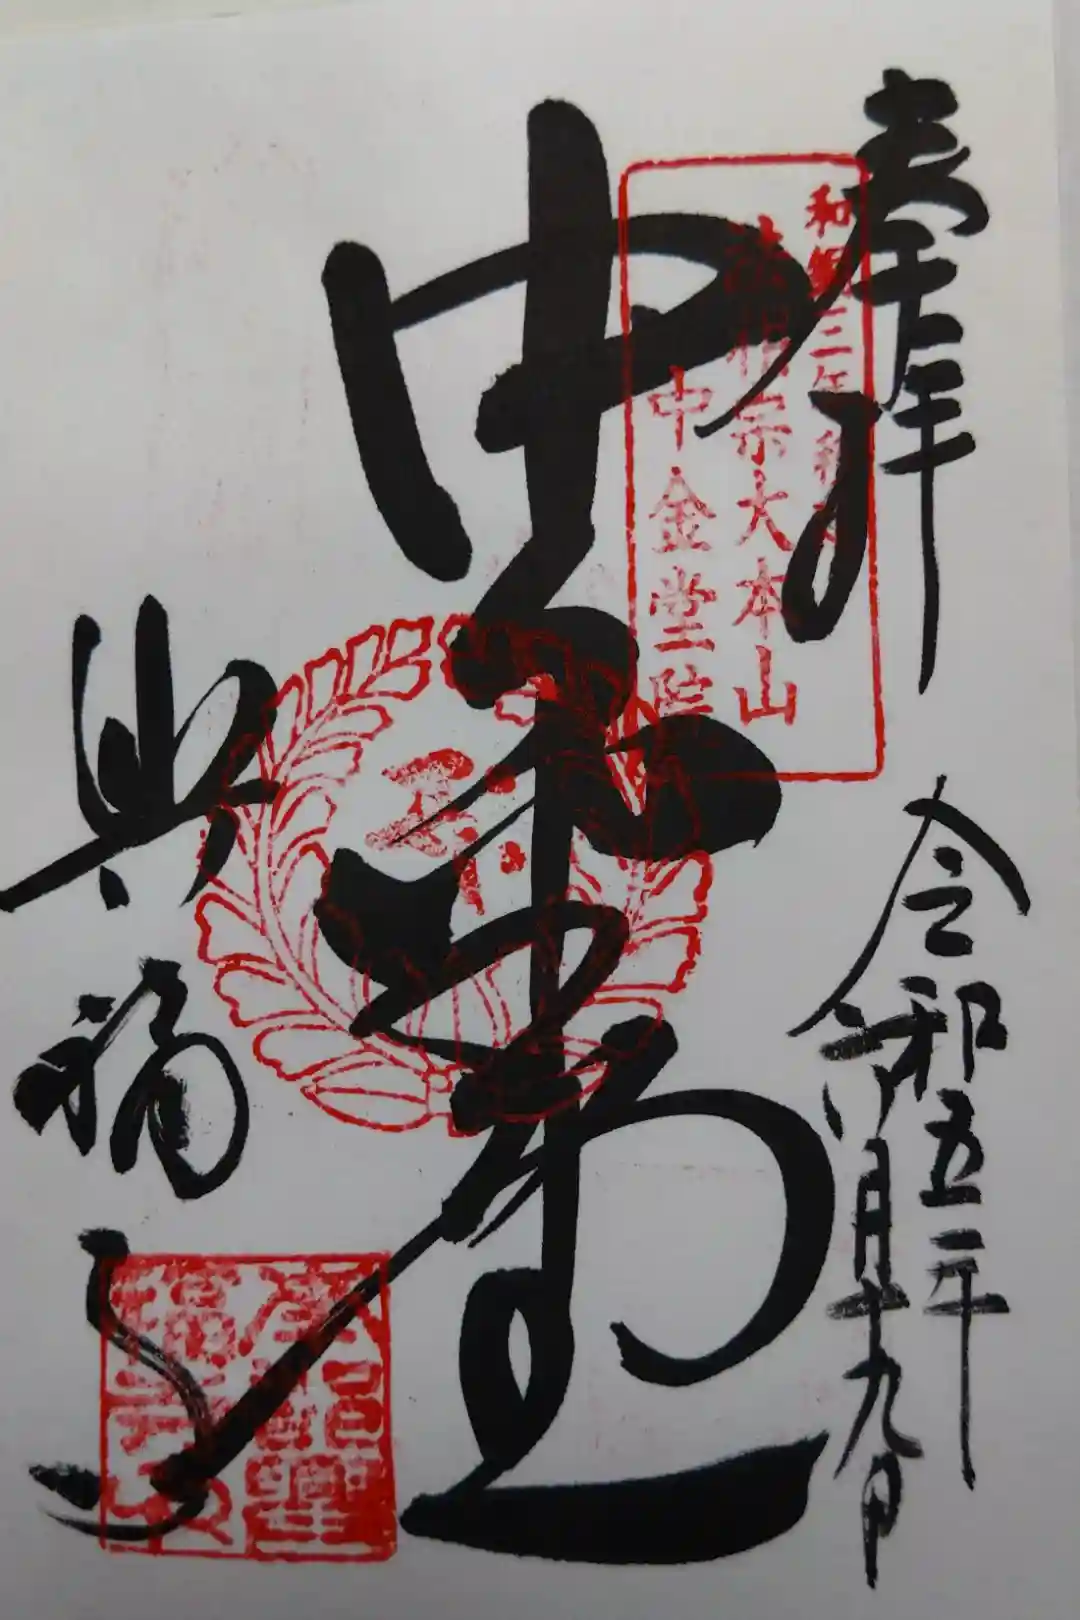 奉拝
令和五年
六月十九日
和銅三年
法相宗大本山
中金堂院
中金堂
興福寺